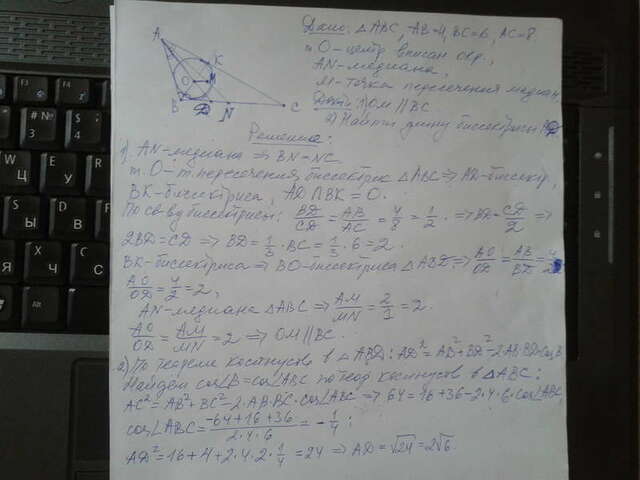 Дано: △ABC, AB=4, BC=6, AC=8
т. O-центр вписан. окр.,
AN-медиана,
M-точка пересечения медиан,
1) OM || BC
2) Найти длину биссектрисы AD
A
K
O
M
B
D
N
C
Решение:
1). AN-медиана ⇒ BN=NC.
т. O-т. пересечения биссектрис △ABC ⇒ AD-биссектр.,
BK-биссектриса, AD∩BK=O.
По св-ву биссектрисы: BD/CD = AB/AC = 4/8 = 1/2. ⇒ BD = CD/2 ⇒
2BD=CD ⇒ BD = 1/3 · BC = 1/3 · 6 = 2.
BK-биссектриса ⇒ BO-биссектриса △ABD ⇒ AO/OD = AB/BD = 4/2
AO/OD = 4/2 = 2,
AN-медиана △ABC ⇒ AM/MN = 2/1 = 2.
AO/OD = AM/MN = 2 ⇒ OM || BC.
2) По теореме косинусов в △ABD: AD² = AB²+BD²-2·AB·BD·cosB
Найдём cos∠B = cos∠ABC по теор. косинусов в △ABC:
AC² = AB²+BC²-2·AB·BC·cos∠ABC ⇒ 64=16+36-2·4·6·cos∠ABC,
cos∠ABC = (-64+16+36)/(2·4·6) = -1/4;
AD² = 16+4+2·4·2·1/4 = 24 ⇒ AD = √24 = 2√6.